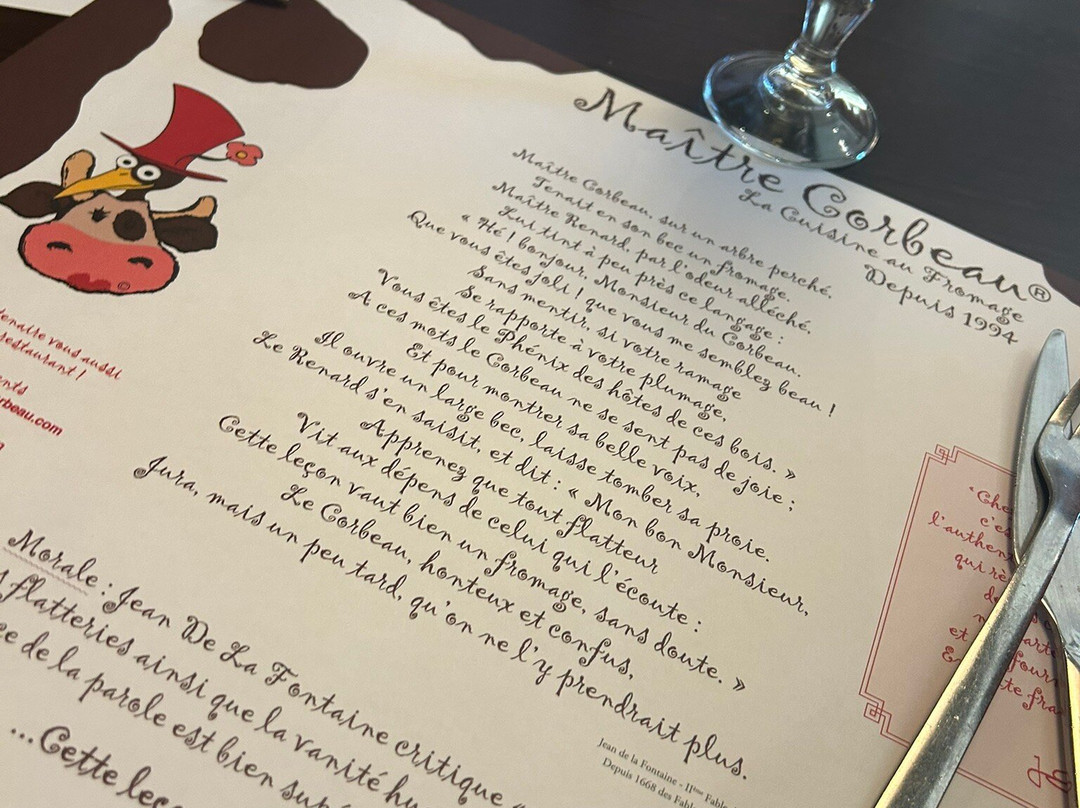 Maître Corbeau®
La Cuisine au Fromage
Depuis 1994
Maître Corbeau, sur un arbre perché,
Tenait en son bec un fromage.
Maître Renard, par l'odeur alléché,
Lui tint à peu près ce langage :
« Hé ! bonjour, Monsieur du Corbeau.
Que vous êtes joli ! que vous me semblez beau !
Sans mentir, si votre ramage
Se rapporte à votre plumage,
Vous êtes le Phénix des hôtes de ces bois. »
A ces mots le Corbeau ne se sent pas de joie ;
Et pour montrer sa belle voix,
Il ouvre un large bec, laisse tomber sa proie.
Le Renard s'en saisit, et dit : « Mon bon Monsieur,
Apprenez que tout flatteur
Vit aux dépens de celui qui l'écoute :
Cette leçon vaut bien un fromage, sans doute. »
Le Corbeau, honteux et confus,
Jura, mais un peu tard, qu'on ne l'y prendrait plus.
Jean de la Fontaine - IIème Fable
Depuis 1668 des
Morale : Jean De La Fontaine critique
flatteries ainsi que la vanité
de la parole est bien
...Cette
vous aussi
restaurant !
beau.com
©
"
c'e
l'authen
qui
et